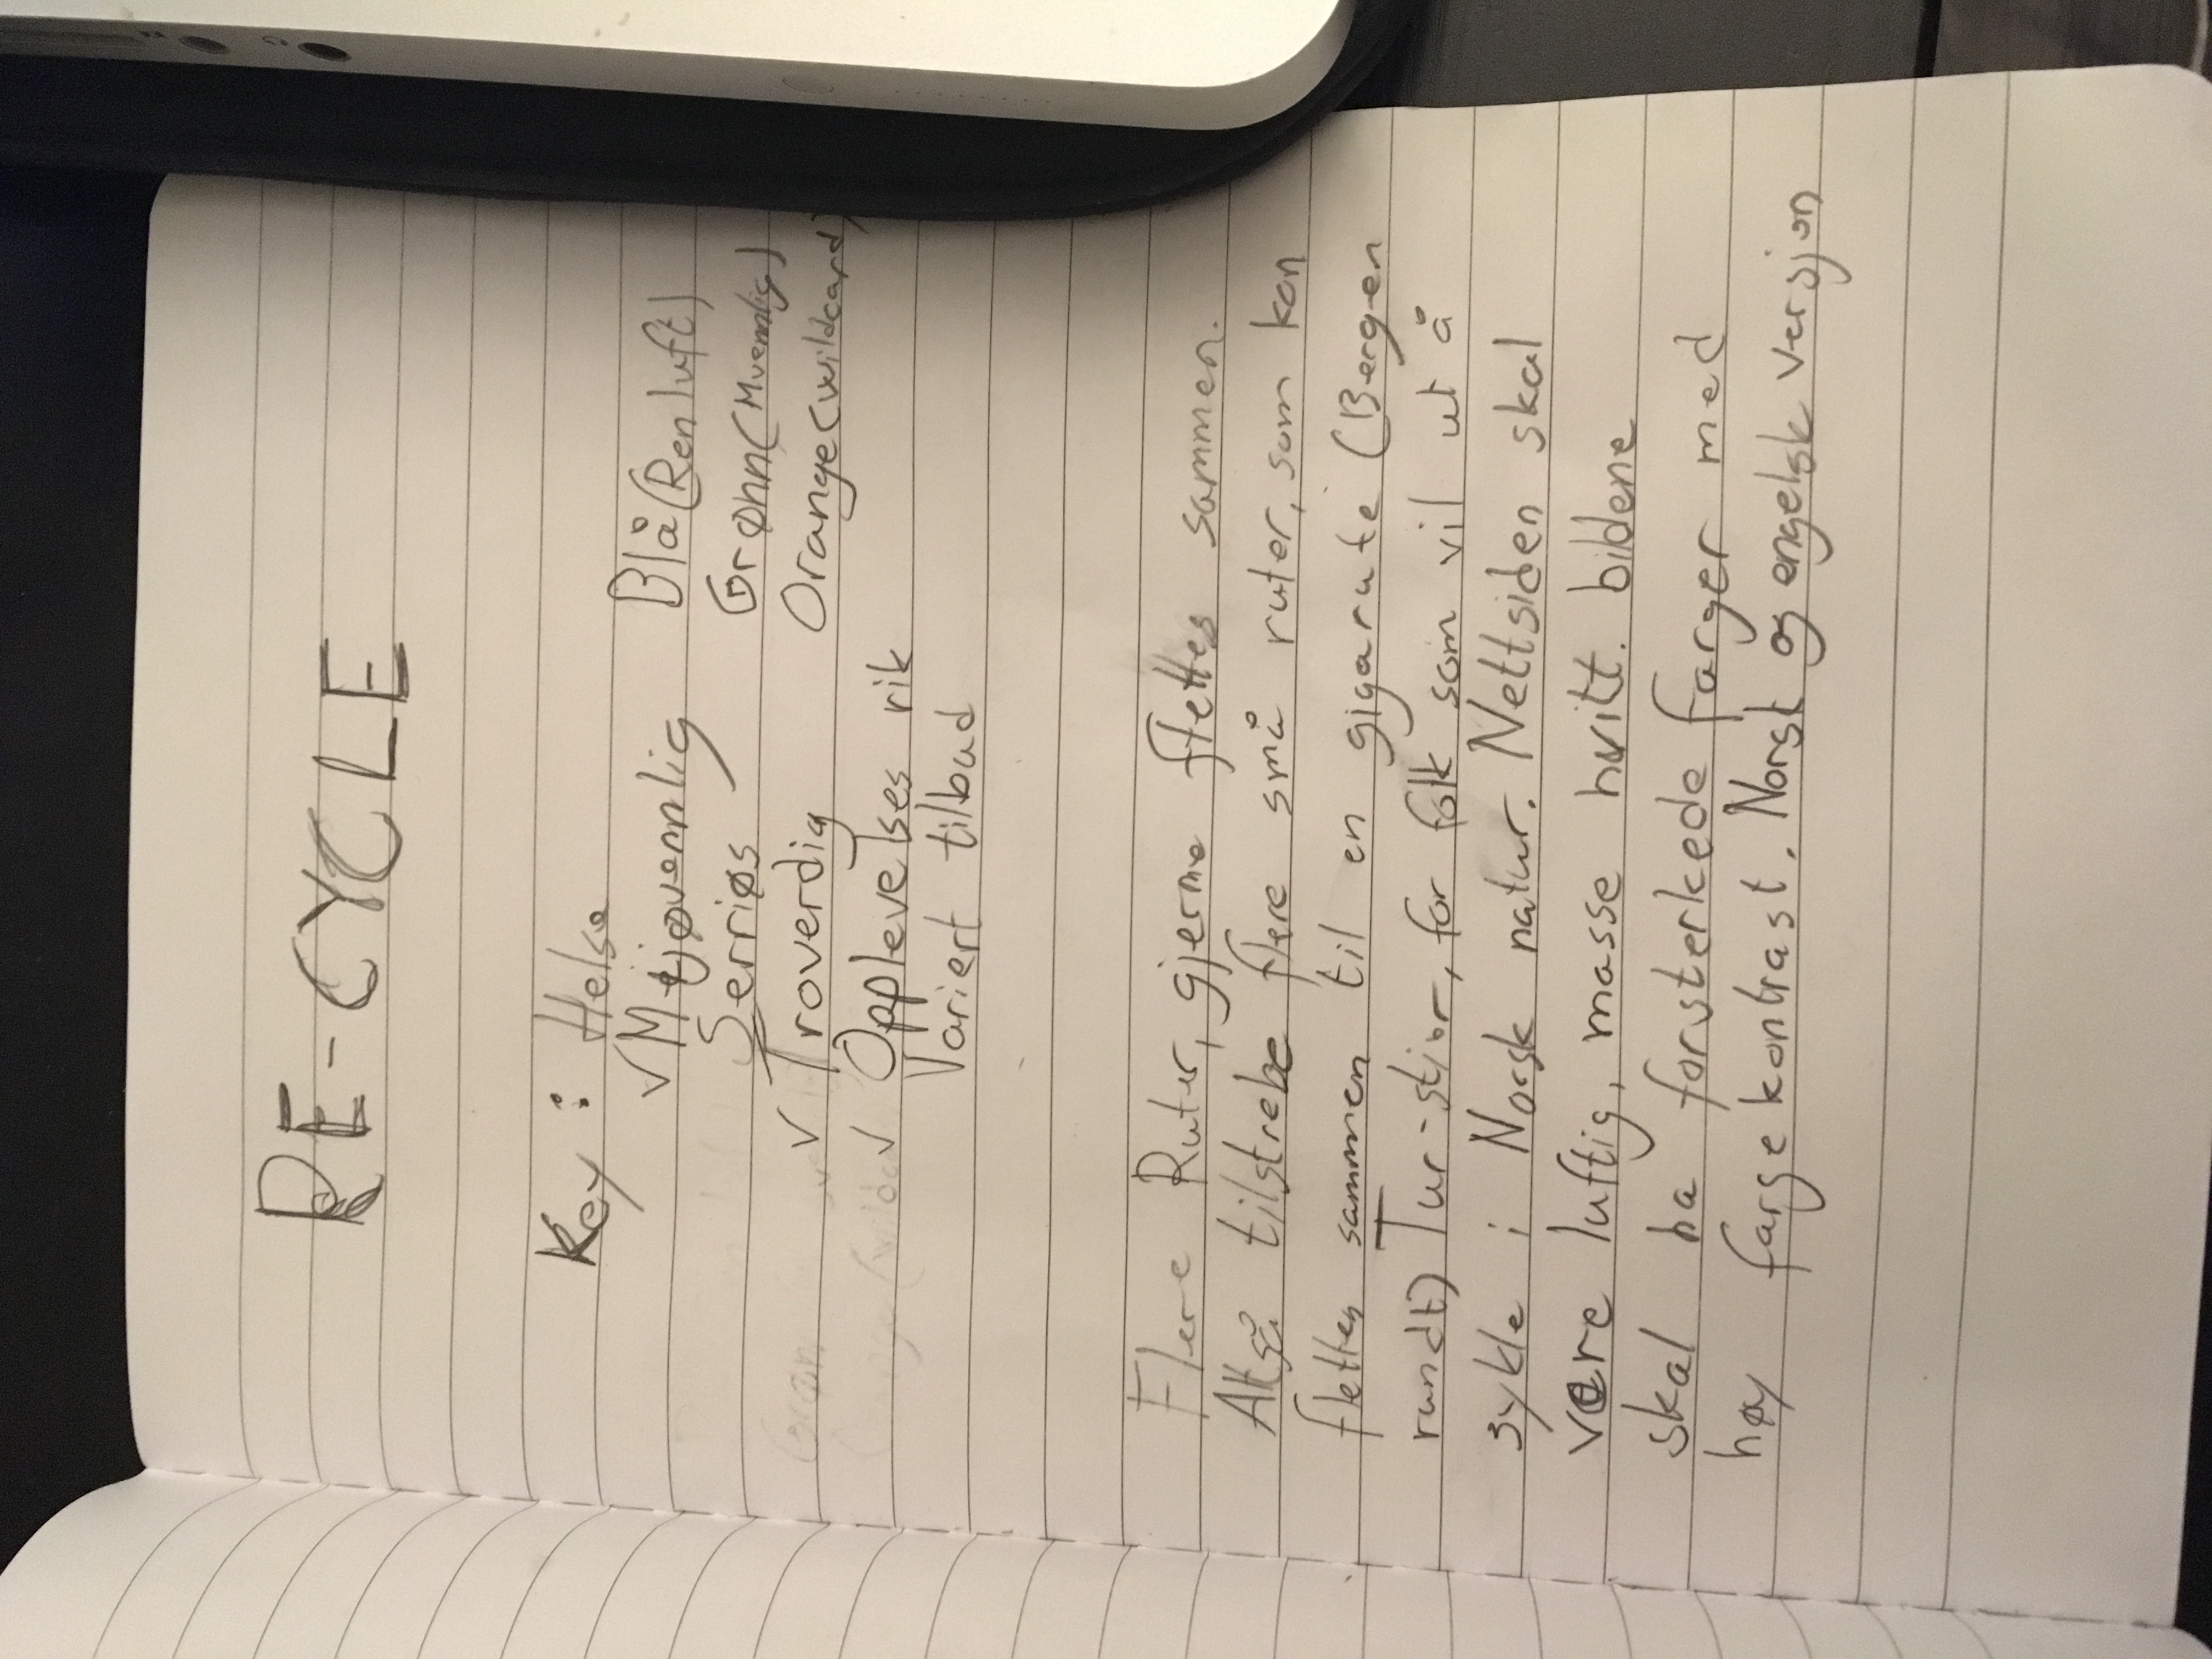 RE-CYCLE
Key : Helse
✓ Mijøvennlig Blå (Ren luft)
Serriøs Grønn (Mvennlig)
✓ Troverdig Orange (wildcard)
✓ Opplevelses rik
Variert tilbud
Flere Ruter, gjerne flettes sammen.
Altså tilstrebe flere små ruter, som kan
flettes sammen til en gigarute (Bergen
rundt) Tur-stier, for folk som vil ut å
sykle i Norsk natur. Nettsiden skal
være luftig, masse hvitt. bildene
skal ha forsterkede farger med
høy fargekontrast. Norsk og engelsk versjon